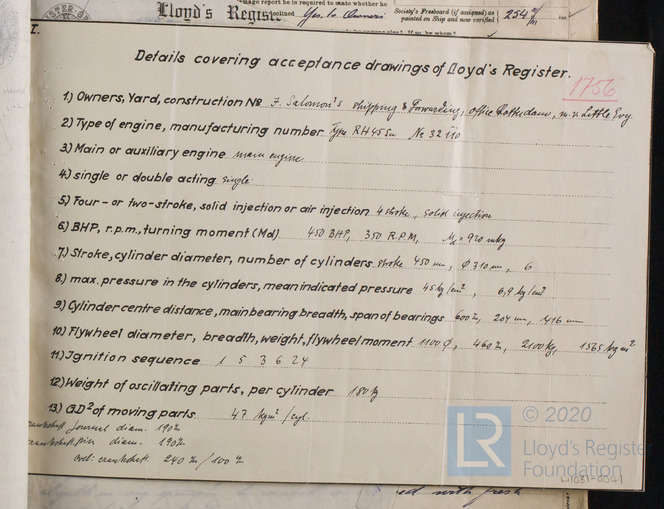 Lloyd's Register
Yes, to Owners
Society's Freeboard (if assigned) as
painted on Ship and now verified
254 m/m
I.
Details covering acceptance drawings of Lloyd's Register.
1756
1.) Owners, Yard, construction No F. Salomon's shipping & Forwarding, office Rotterdam, m.v. Little Evy
2.) Type of engine, manufacturing number Type RH45su No 32110
3.) Main or auxiliary engine main engine
4.) single or double acting single.
5.) Four- or two-stroke, solid injection or air injection 4 stroke, solid injection
6.) BHP, r.p.m., turning moment (Md) 450 BHP, 350 R.P.M, Md = 920 mkg
7.) Stroke, cylinder diameter, number of cylinders stroke 450 mm, φ 310 mm, 6
8.) max. pressure in the cylinders, mean indicated pressure 45 kg/cm², 6,9 kg/cm²
9.) Cylinder centre distance, main bearing breadth, span of bearings 600 204 416
10.) Flywheel diameter, breadth, weight, flywheel moment 1100 φ, 460 2100 kg, 1565 kg m²
11.) Ignition sequence 1 5 3 6 2 4
12.) Weight of oscillating parts, per cylinder 180 kg
13.) GD² of moving parts 47 kgm²/cyl.
crankshaft Journal diam. 190
crankshaft pin diam. 190
crankshaft 240 / 100
LR © 2020
Lloyd's Register
Foundation
W1031-0041
with fresh